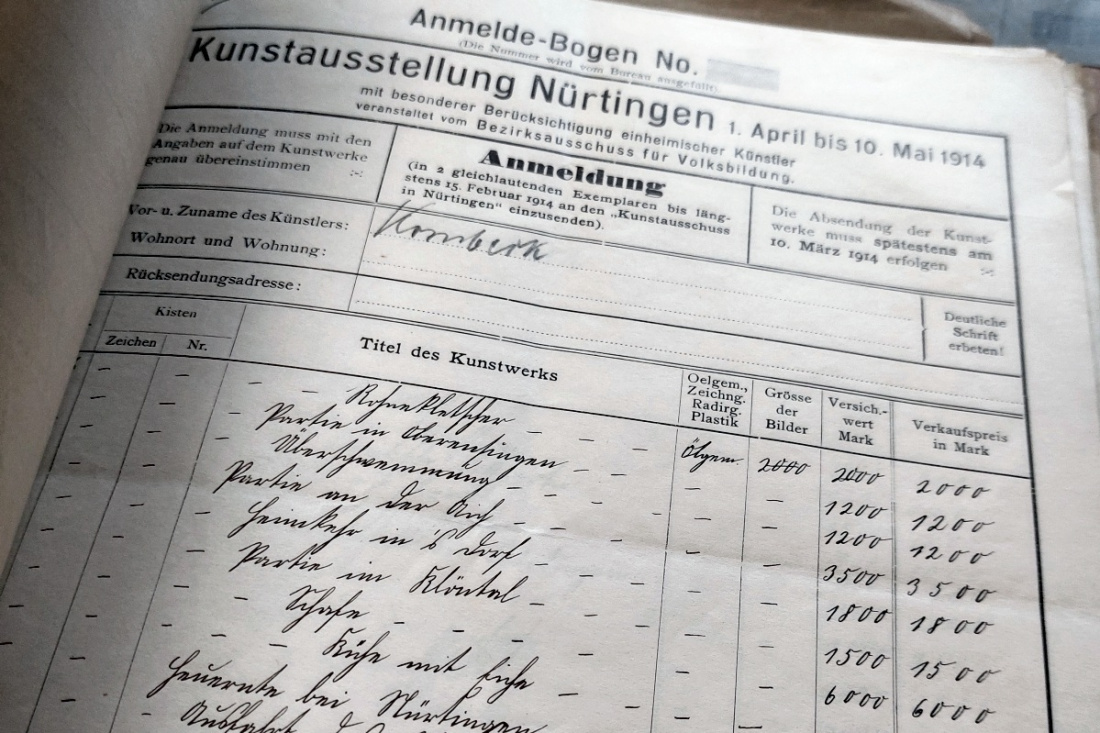 Anmelde-Bogen No.
(Die Nummer wird vom Bureau ausgefüllt).
Kunstausstellung Nürtingen 1. April bis 10. Mai 1914
mit besonderer Berücksichtigung einheimischer Künstler
veranstaltet vom Bezirksausschuss für Volksbildung.
Die Anmeldung muss mit den
Angaben auf dem Kunstwerke
genau übereinstimmen
Anmeldung
(in 2 gleichlautenden Exemplaren bis läng-
stens 15. Februar 1914 an den „Kunstausschuss
in Nürtingen“ einzusenden).
Die Absendung der Kunst-
werke muss spätestens am
10. März 1914 erfolgen
Vor- u. Zuname des Künstlers:
Wohnort und Wohnung:
Rücksendungsadresse:
Deutliche
Schrift
erbeten!
Kisten
Zeichen Nr.
Titel des Kunstwerks
Oelgem.,
Zeichng.
Radirg.
Plastik
Grösse
der
Bilder
Versich.-
wert
Mark
Verkaufspreis
in Mark
Ölgem. 2000 2000 2000
Partie in Oberensingen – – – – 1200 1200
Überschwemmung – – – – 1200 1200
Partie an der Aich – – – – 3500 3500
Heimkehr in's Dorf – – – – 1800 1800
Partie im – – – 1500 1500
Schafe – – – – 6000 6000
Kühe mit Eiche –
Heuernte bei Nürtingen
Ausfahrt